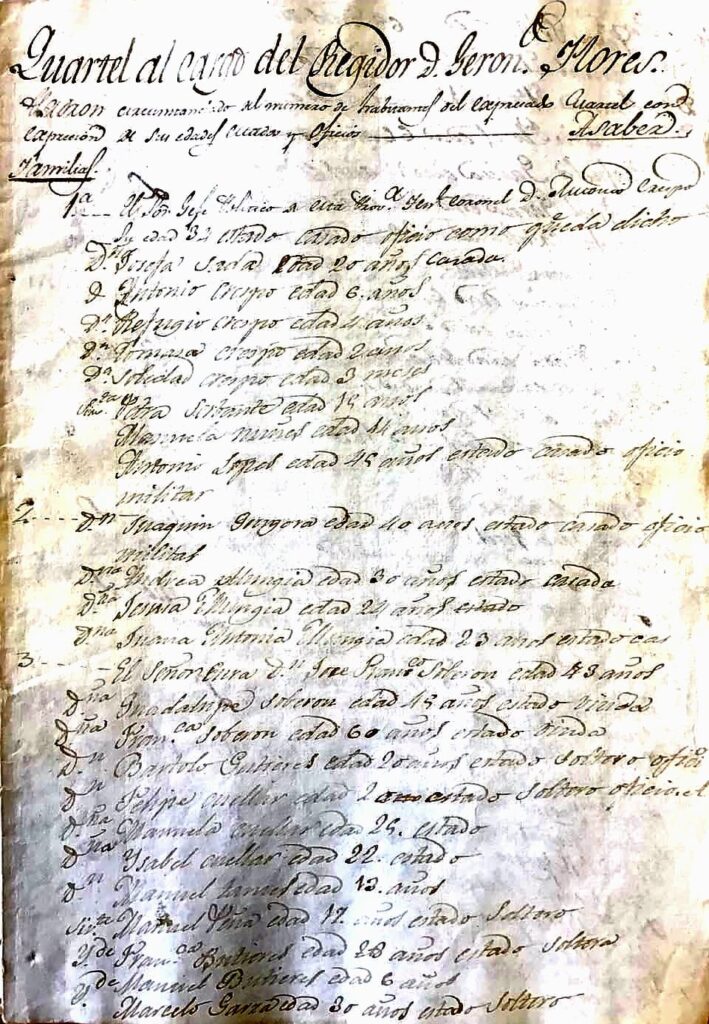 Quartel al cargo del Regidor D. Geron.º Flores.
Padron circunstanciado del numero de havitantes del expresado Quartel con
expresion de sus edades estados y oficios Asaber.
Familias.
1.ª El Sor. Gefe Politico de esta Prov.ª Ten.te Coronel D. Antonio Crespo
Su edad 32 estado casado oficio como queda dicho
D.ª Josefa Sada edad 20 años casada.
D. Antonio crespo edad 6 años
D.ª Refugio crespo edad 4 años
D.ª Tomasa crespo edad 2 años
D.ª Soledad crespo edad 3 meses
Sirvientes edad 15 años
Manuela nuñes edad 14 años
Antonio Lopes edad 45 años estado casado oficio
militar
2 D.n Juaquin Gongora edad 40 años estado casado oficio
militar
D.ña Andrea Mungia edad 30 años estado casada
D.ña Mungia edad 24 años estado
D.ña Juana Antonia Mungia edad 23 años estado cas
3 El Señor Cura D.n Jose Fran.co Soberon edad 43 años
D.ña Guadalupe Soberon edad 45 años estado viuda
D.ña Fran.ca Soberon edad 60 años estado viuda
D.n Bartolo Gutieres edad 20 años estado soltero ofici
D.n Felipe cuellar edad 20 estado soltero oficio
D.ña Manuela cuellar edad 25. estado
D.ña Ysabel cuellar edad 22. estado
D.n Manuel edad 13. años
Sir.te Manuel Peña edad 17. años estado soltero
Yde Fran.ca Butieres edad 28 años estado soltera
Yde Manuel Butieres edad 6 años
Marcelo Garza edad 30 años estado soltero